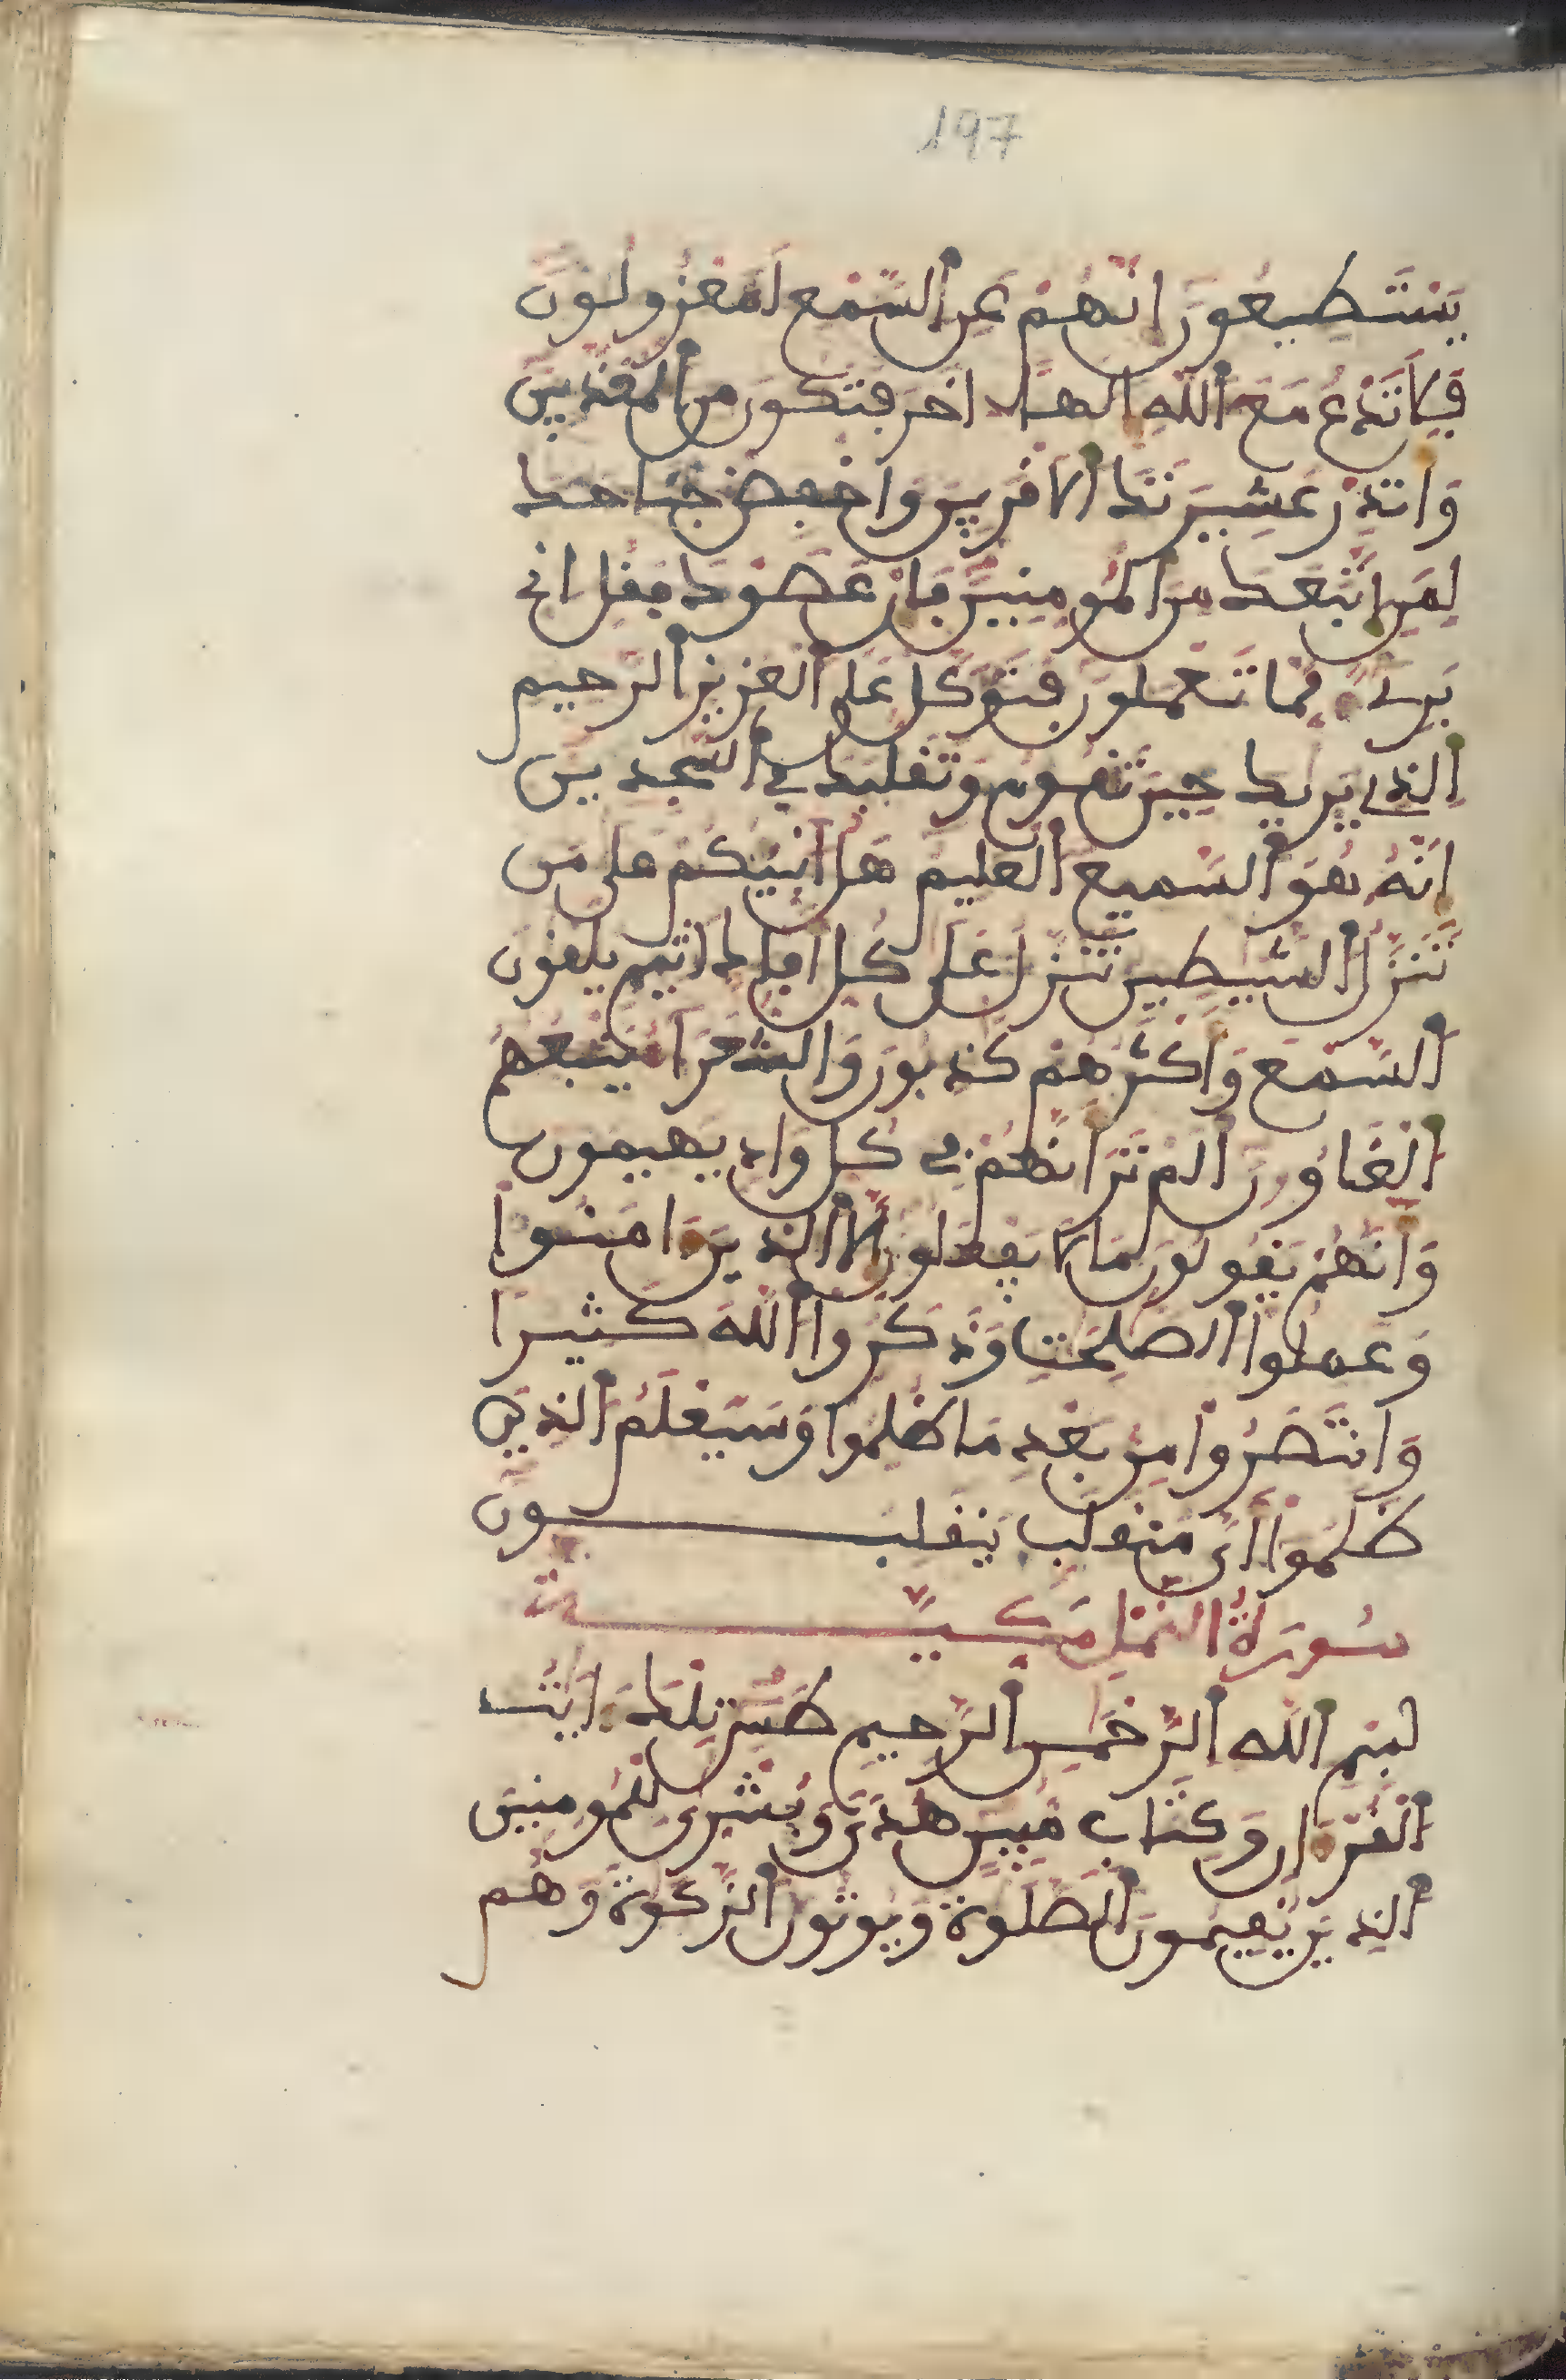 197
يَسْتَطِيعُونَ إِنَّهُمْ عَنِ ٱلسَّمْعِ لَمَعْزُولُونَ
فَلَا تَدْعُ مَعَ ٱللَّهِ إِلَٰهًا اخَرَ فَتَكُونَ مِنَ ٱلْمُعَذَّبِينَ
وَأَنذِرْ عَشِيرَتَكَ ٱلَاقْرَبِينَ وَاخْفِضْ جَنَاحَكَ
لِمَنِ اتَّبَعَكَ مِنَ ٱلْمُومِنِينَ فَإِنْ عَصَوْكَ فَقُلِ انِّي
بَرِيءٌ مِّمَّا تَعْمَلُونَ فَتَوَكَّلْ عَلَى ٱلْعَزِيزِ ٱلرَّحِيمِ
ٱلذِي يَرَيٰكَ حِينَ تَقُومُ وَتَقَلُّبَكَ فِي ٱلسَّٰجِدِينَ
إِنَّهُ هُوَ ٱلسَّمِيعُ ٱلْعَلِيمُ هَلُ انَبِّئُكُمْ عَلَىٰ مَن
تَنَزَّلُ ٱلشَّيَٰطِينُ تَنَزَّلُ عَلَىٰ كُلِّ أَفَّاكٍ اثِيمٍ يُلْقُونَ
ٱلسَّمْعَ وَأَكْثَرُهُمْ كَٰذِبُونَ وَالشُّعَرَآءُ يَتْبَعُهُمُ
ٱلْغَاوُونَ أَلَمْ تَرَ أَنَّهُمْ فِي كُلِّ وَادٍ يَهِيمُونَ
وَأَنَّهُمْ يَقُولُونَ مَا لَا يَفْعَلُونَ إِلَّا ٱلذِينَ ءَامَنُوا
وَعَمِلُوا ٱلصَّٰلِحَٰتِ وَذَكَرُوا ٱللَّهَ كَثِيرًا
وَانتَصَرُوا مِنۢ بَعْدِ مَا ظُلِمُوا وَسَيَعْلَمُ ٱلذِينَ
ظَلَمُوا أَيَّ مُنقَلَبٍ يَنقَلِبُونَ
سُورَةُ النَّمْلِ مَكِّيَّة
بِسْمِ ٱللَّهِ ٱلرَّحْمَٰنِ ٱلرَّحِيمِ طَسِ تِلْكَ ءَايَٰتُ
ٱلْقُرْءَانِ وَكِتَابٍ مُّبِينٍ هُدًى وَبُشْرَىٰ لِلْمُومِنِينَ
ٱلذِينَ يُقِيمُونَ ٱلصَّلَوٰةَ وَيُوتُونَ ٱلزَّكَوٰةَ وَهُم